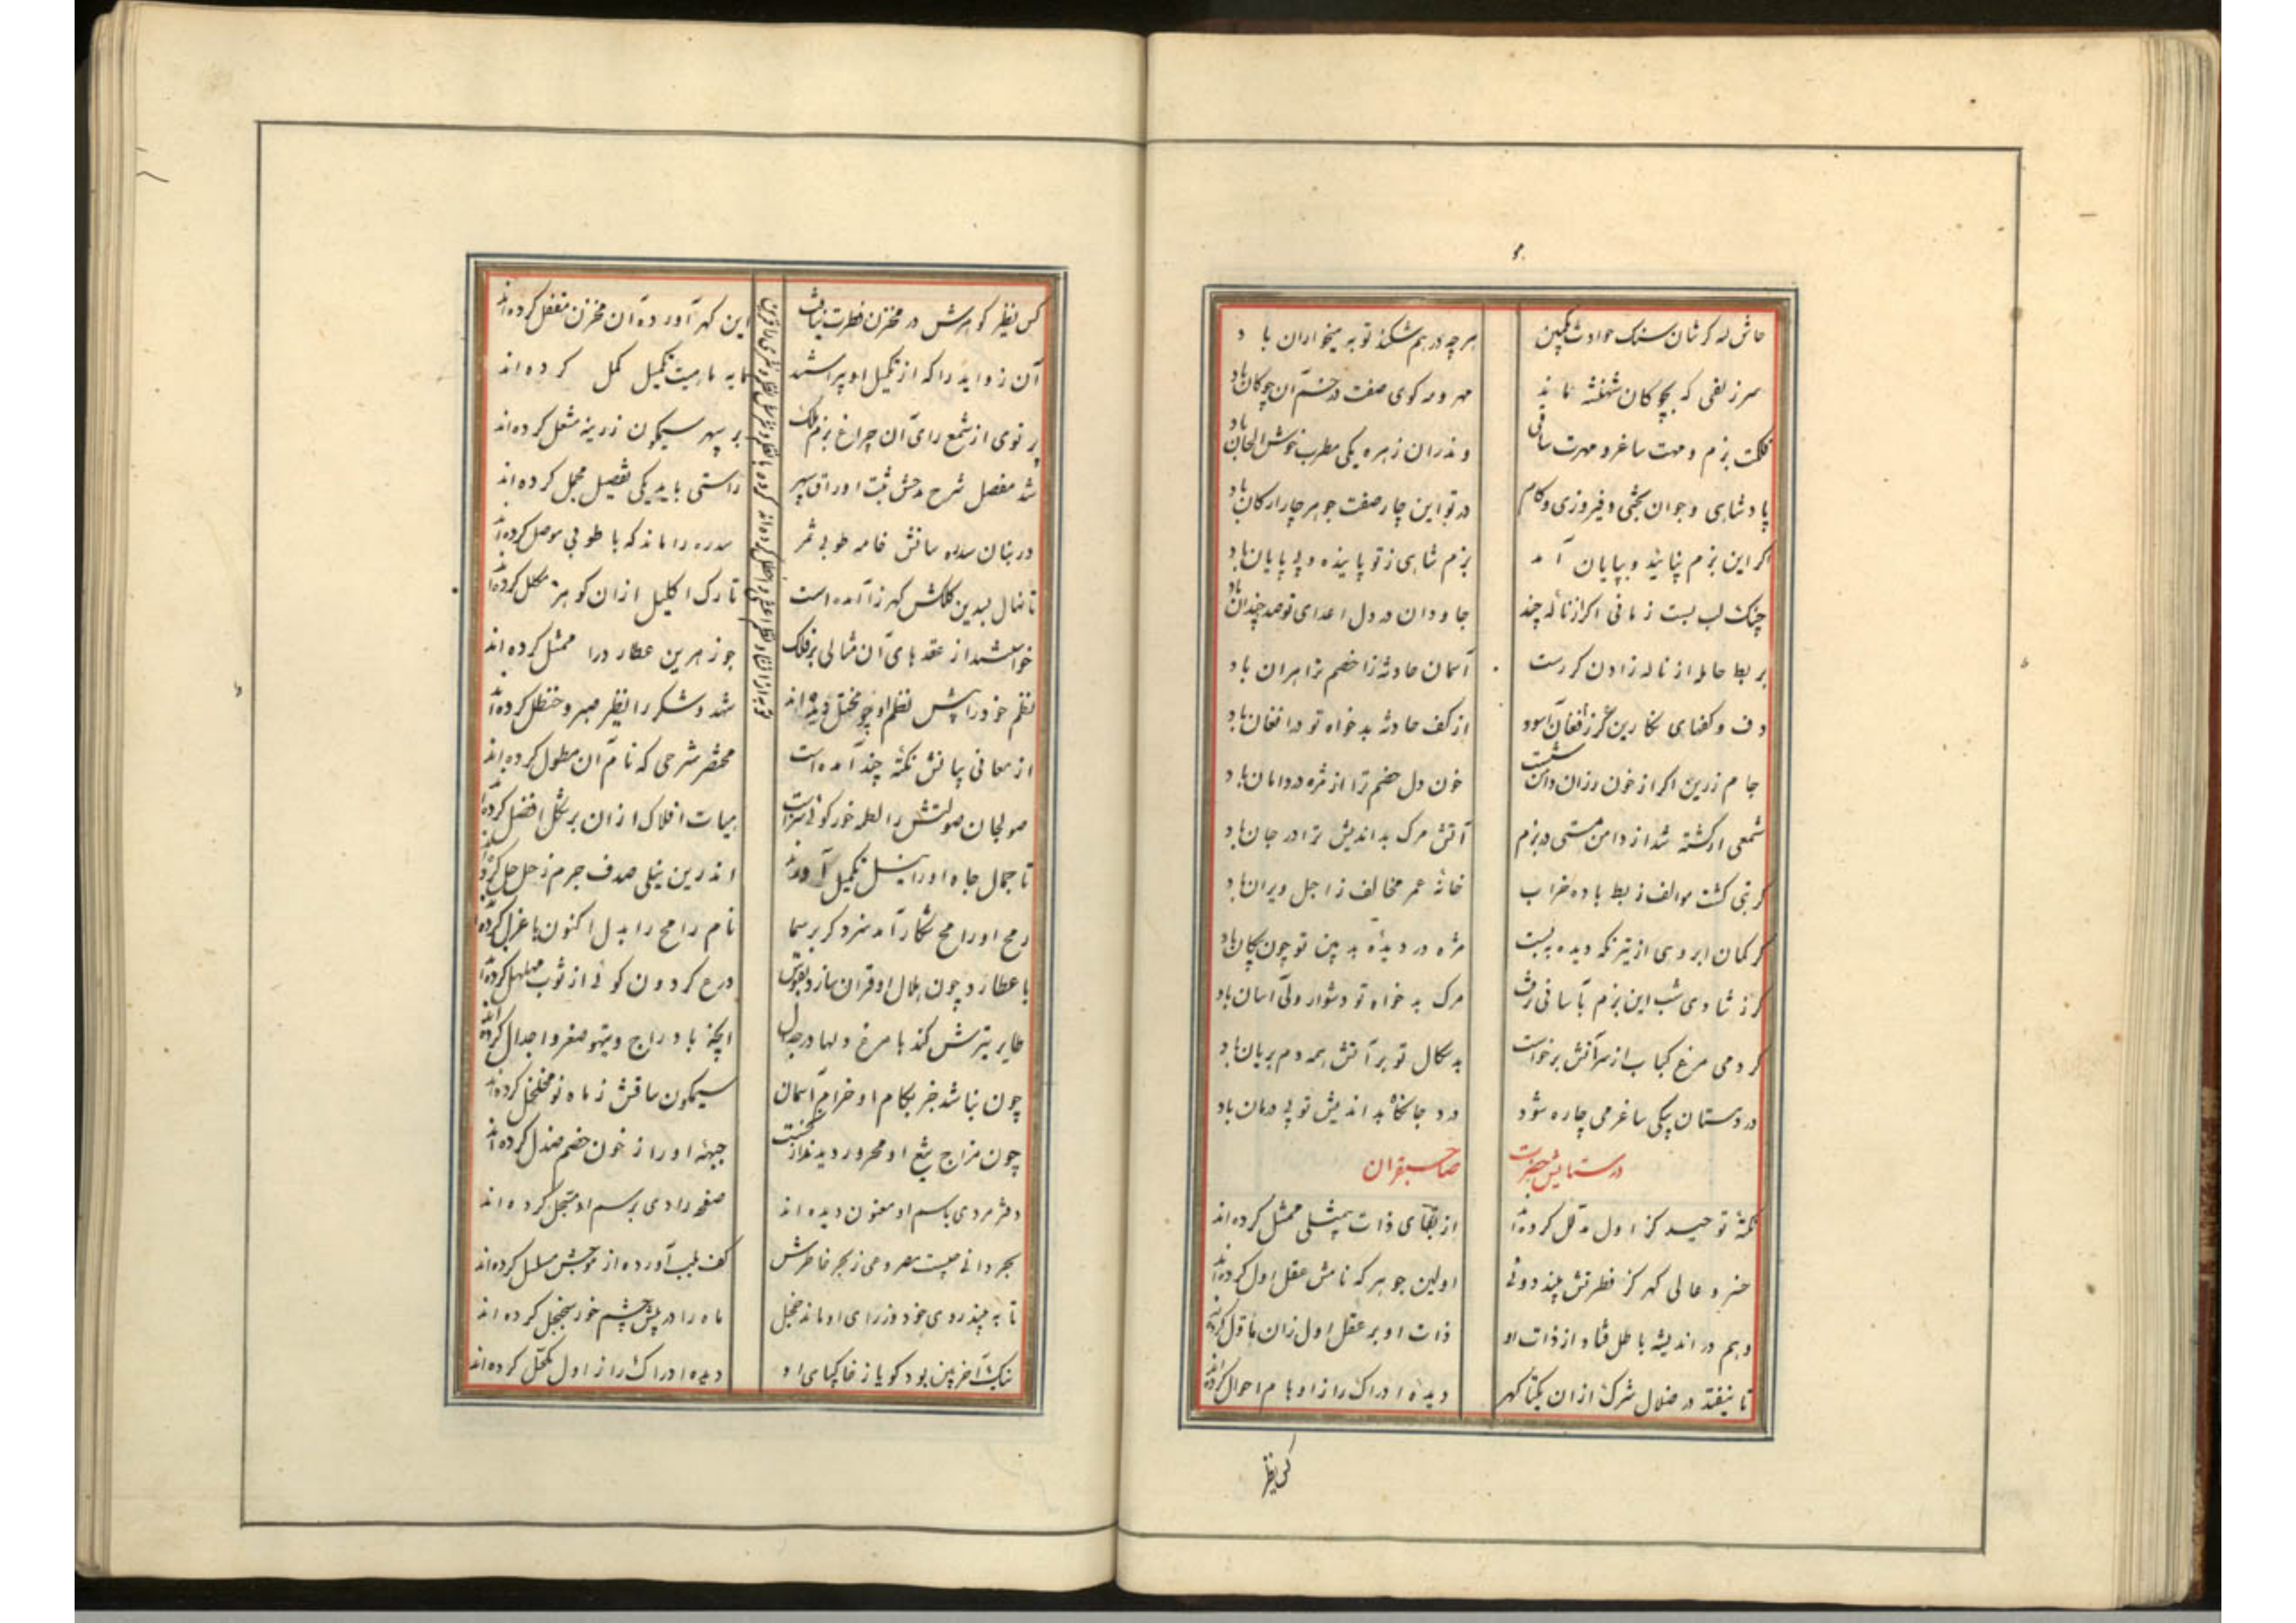 حاش لله کرشان سنک حوادث بکمین
هر چه درهم شکند توبه میخواران با د
سر زلفی که بچوکان شهنشه ماند
مهر و مه کوی صفت در خم آن چوکان باد
فلکت بزم و مهت ساغر و مهرت ساقی
وندران زهره یکی مطرب خوش الحان باد
پادشاهی و جوان بختی و فیروزی و کام
در تو این چار صفت جوهر چار ارکان باد
اکر این بزم نپایید و بپایان آمد
بزم شاهی ز تو پاینده و بی پایان باد
چنک لب بست زمانی اکر از ناله چند
جاودان در دل اعدای تو صد چندان باد
بربط حامله از ناله زادن کر رست
آسمان حادثه زا خصم ترا هران باد
دف و کفهای نکارین کر ز افغان آسود
از کف حادثه بدخواه تو در افغان باد
جام زرین اکر از خون رزان دامن شست
خون دل خصم ترا از مژه در دامان باد
شمعی ار کشته شد از دامن مستی در بزم
آتش مرک بداندیش ترا در جان باد
کر بنی کشت موالف ز بط باده خراب
خانه عمر مخالف ز اجل ویران باد
کر کمان ابروی از تیر نکه دیده ببست
مژه در دیده بد بین تو چون پیکان باد
کر ز شادی شب این بزم بآسانی رفت
مرک بدخواه تو دشوار ولی آسان باد
کر دمی مرغ کباب از سر آتش برخواست
بدسکال تو بر آتش همه دم بریان باد
درد مستان بیکی ساغر می چاره شود
درد جانکاه بداندیش تو بی درمان باد
در ستایش حضرت
صاحبقران
نکته توحید کز اول مدلل کرده‌اند
از بقای ذات بیمثلی ممثل کرده‌اند
خسرو عالی کهر کز فطرتش بیند دونی
اولین جوهر که نامش عقل اول کرده‌اند
وهم در اندیشه باطل فتاد از ذات او
ذات او بر عقل اول زان ماول کرده‌اند
تا نیفتد در ضلال شرک ازان یکتا کهر
دیده ادراک را ز اوهام احول کرده‌اند
کس نظیر
کس نظیر کوهرش در مخزن فطرت نیافت
این کهر آورده آن مخزن مقفل کرده‌اند
آن زواید را که از تکمیل او پیراستند
مایه ماهیت تکمیل کمل کرده‌اند
پرتوی از شمع رای آن چراغ بزم ملک
بر سپهر سیمکون زرینه مشعل کرده‌اند
شد مفصل شرح مدحش ثبت اوراق سپهر
راستی باید یکی تفصیل مجمل کرده‌اند
در بنان سدره سانش خامه طوبی ثمر
سدره را ماند که با طوبی موصل کرده‌اند
تا نهال بسدین کلکش کهر زا آمده است
تارک اکلیل ازان کوهر مکلل کرده‌اند
خواستند از عقدهای آن مثالی بر فلک
جوزهر بن عطارد را ممثل کرده‌اند
نظم خود را پیش نظم او چو مختل دیده‌اند
شهد و شکر را نظیر صبر و حنظل کرده‌اند
از معانی بیانش نکته چند آمده است
مختصر شرحی که نام آن مطول کرده‌اند
صولجان صولتش را لعله خور کوئی سزاست
هیات افلاک ازان بر شکل افضل کرده‌اند
تا جمال جاه او را نیل تکمیل آورند
اندرین نیلی صدف جرم زحل حل کرده‌اند
رمح او رامح شکار آمد سزد کر بر سما
نام رامح را بدل اکنون باعزل کرده‌اند
با عطارد چون هلال او قران سازد بقوس
درع کردون کوئی از ثوب مهلهل کرده‌اند
طایر تیرش کند با مرغ دلها در جدل
آنچه با دراج و تیهو صقر و اجدل کرده‌اند
چون نباشد جز بکام او خرام آسمان
سیمکون ساقش ز ماه نو مخلخل کرده‌اند
چون مزاج تیغ او محرور دیدند از نخست
جبهه او را ز خون خصم صندل کرده‌اند
دفتر مردی باسم او معنون دیده‌اند
صفحه رادی برسم او مسجل کرده‌اند
بحر دانی چیست مصروعی ز بحر خاطرش
کف بلب آورده از موجش مسلسل کرده‌اند
تا نه بیند روی خود وز رای او ماند خجل
ماه را در پیش چشم خور سجنجل کرده‌اند
نیک آخر بین بود کویا ز خاکپای او
دیده ادراک را ز اول مکحل کرده‌اند